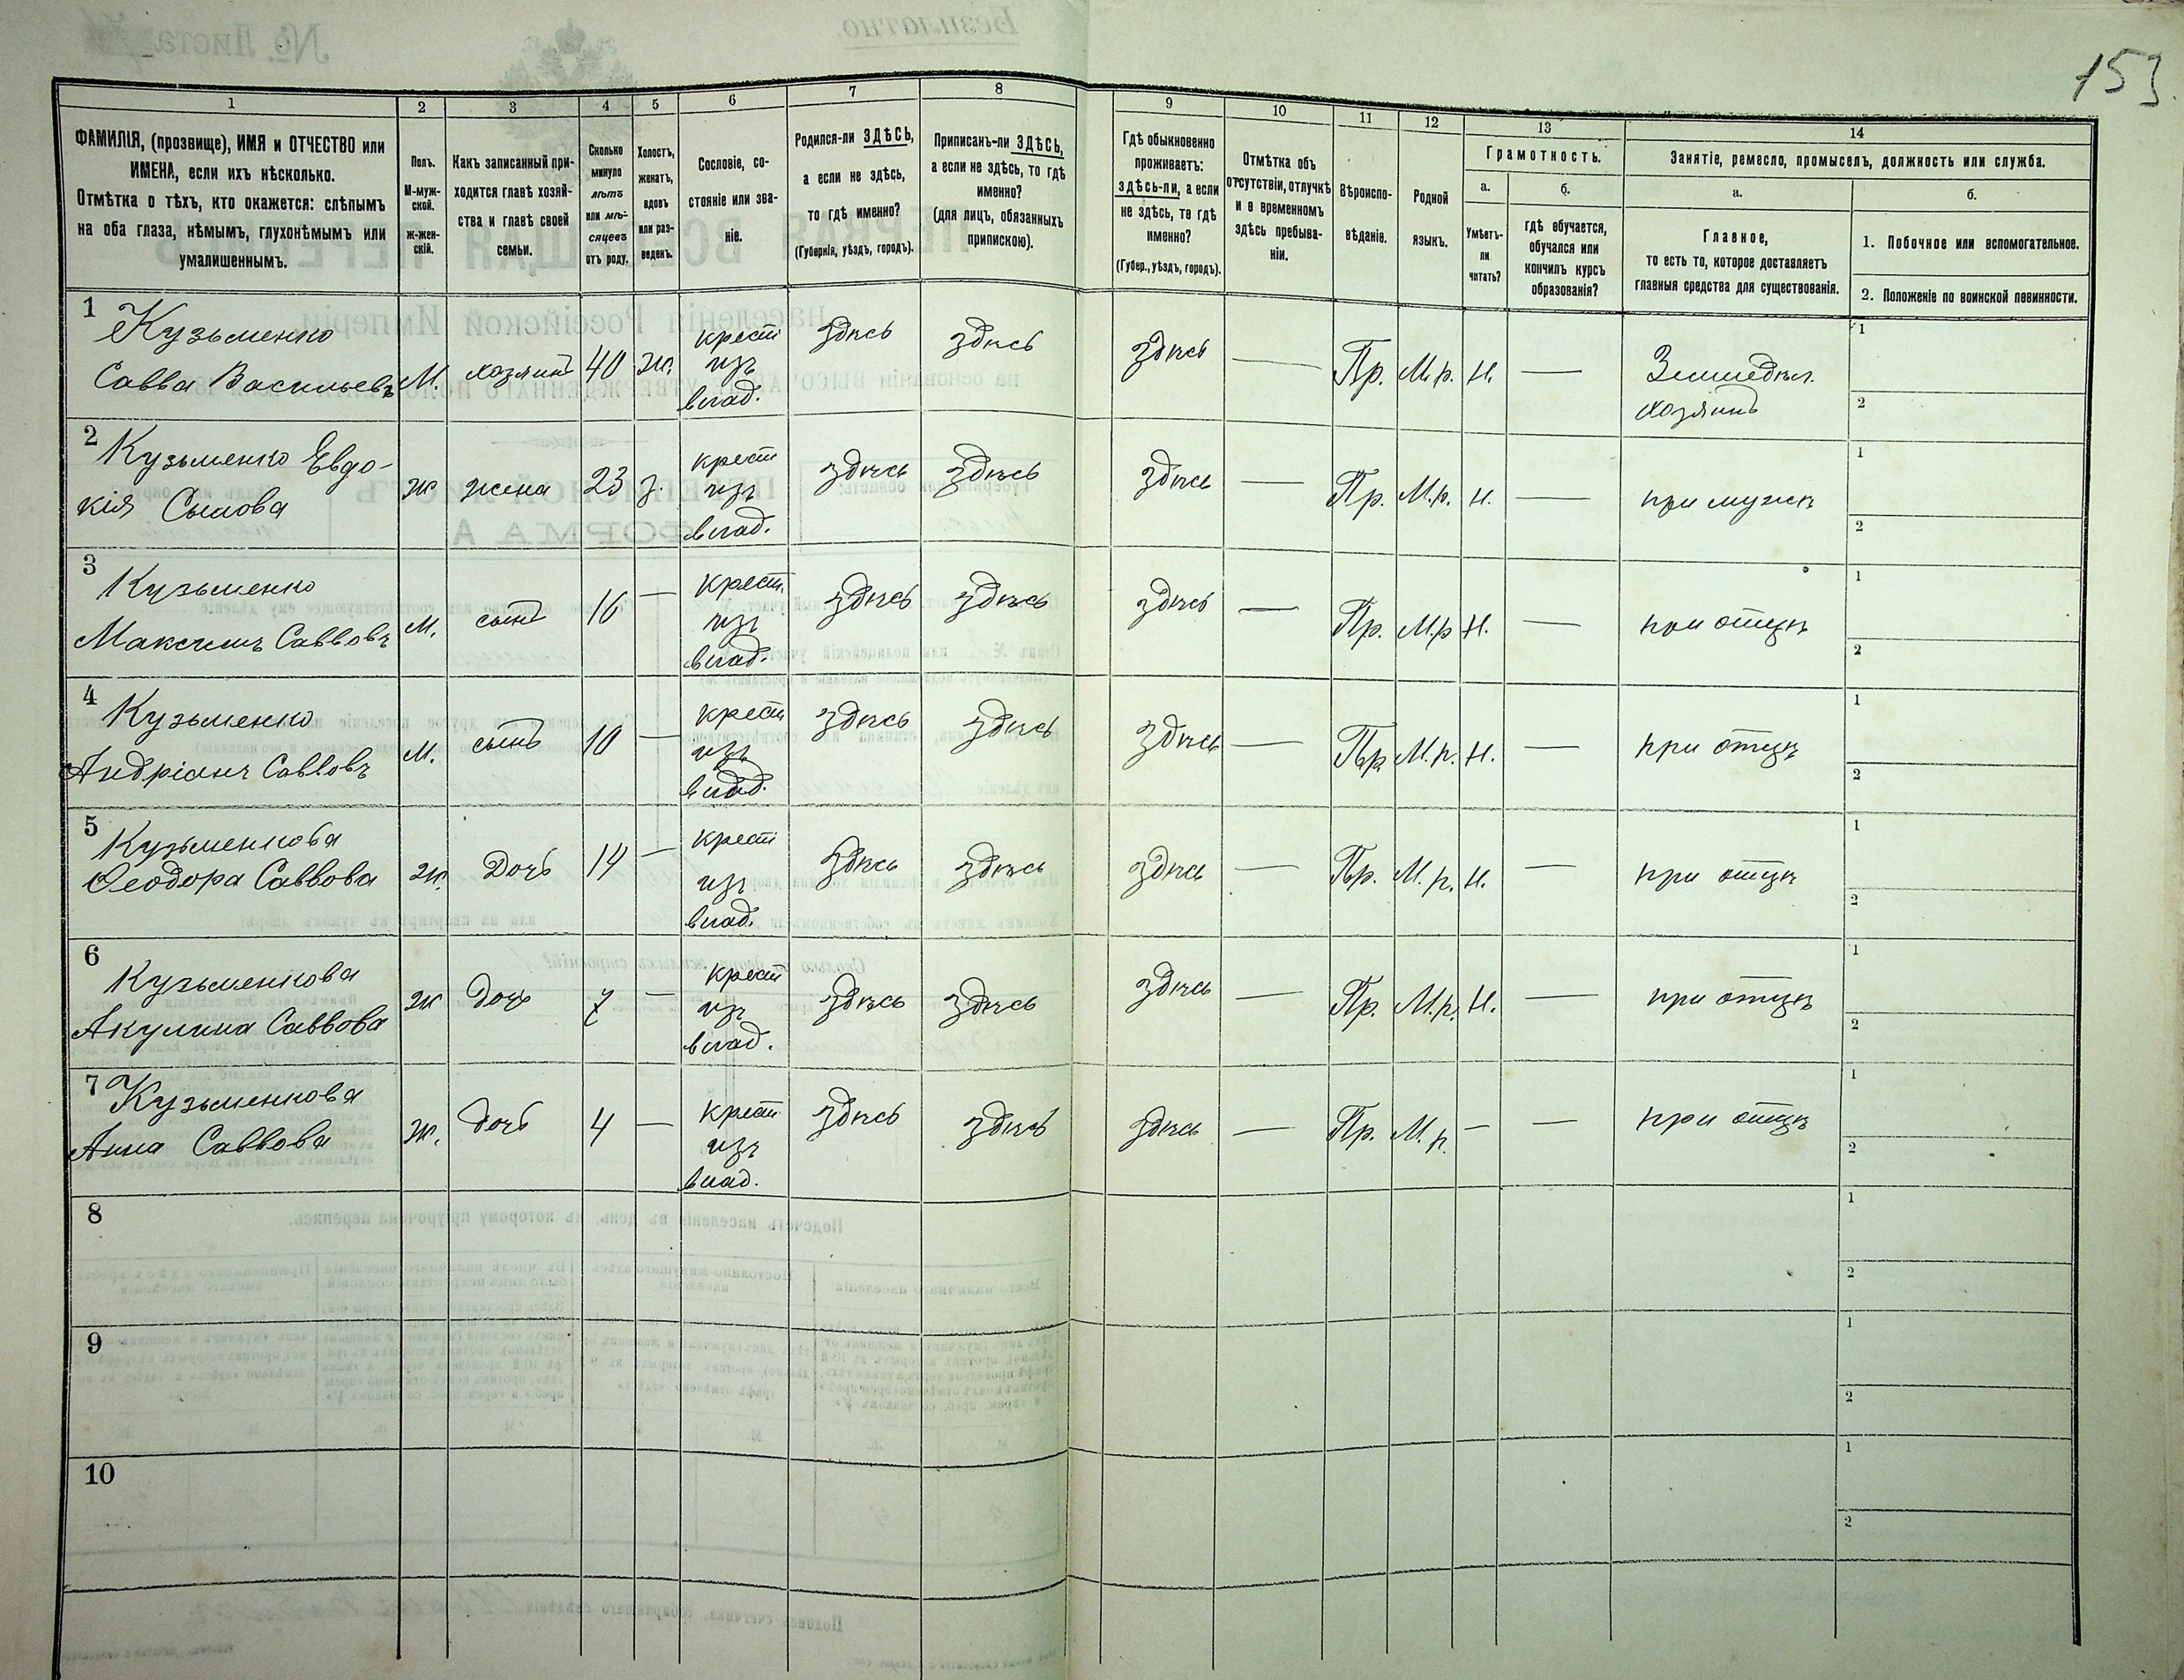 153
1
2
3
4
5
6
7
8
9
10
11
12
13
14
ФАМИЛІЯ, (прозвище), ИМЯ и ОТЧЕСТВО или
ИМЕНА, если ихъ нѣсколько.
Отмѣтка о тѣхъ, кто окажется: слѣпымъ
на оба глаза, нѣмымъ, глухонѣмымъ или
умалишеннымъ.
Полъ.
М-муж-
ской.
ж-жен-
скій.
Какъ записанный при-
ходится главѣ хозяй-
ства и главѣ своей
семьи.
Сколько
минуло
лѣтъ
или мѣ-
сяцевъ
отъ роду.
Холостъ,
женатъ,
вдовъ
или раз-
веденъ.
Сословіе, со-
стояніе или зва-
ніе.
Родился-ли ЗДѢСЬ,
а если не здѣсь,
то гдѣ именно?
(Губернія, уѣздъ, городъ).
Приписанъ-ли ЗДѢСЬ,
а если не здѣсь, то гдѣ
именно?
(для лицъ, обязанныхъ
припискою).
Гдѣ обыкновенно
проживаетъ:
здѣсь-ли, а если
не здѣсь, то гдѣ
именно?
(Губер., уѣздъ, городъ).
Отмѣтка объ
отсутствіи, отлучкѣ
и о временномъ
здѣсь пребыва-
ніи.
Вѣроиспо-
вѣданіе.
Родной
языкъ.
Грамотность.
а.
Умѣетъ-
ли
читать?
б.
гдѣ обучается,
обучался или
кончилъ курсъ
образованія?
Занятіе, ремесло, промыселъ, должность или служба.
а.
Главное,
то есть то, которое доставляетъ
главныя средства для существованія.
б.
1. Побочное или вспомогательное.
2. Положеніе по воинской повинности.
1
Кузьменко
Савва Васильевъ М. хозяинъ 40 ж. крест. изъ влад. здѣсь здѣсь здѣсь — Пр. М.р. Н. — Земледѣл.
хозяинъ
1
2
2
Кузьменко Евдо-
кія ж жена 23 з. крест изъ влад. здѣсь здѣсь здѣсь — Пр. М.р. Н. — при мужѣ
1
2
3
Кузьменко
Максимъ Саввовъ М. сынъ 16 — крест. изъ влад. здѣсь здѣсь здѣсь — Пр. М.р Н. — при отцѣ
1
2
4
Кузьменко
Андріанъ Саввовъ М. сынъ 10 — крест изъ влад. здѣсь здѣсь здѣсь — Пр. М.р. Н. — при отцѣ
1
2
5
Кузьменкова
Ѳеодора Саввова ж. Дочь 14 — крест изъ влад. здѣсь здѣсь здѣсь — Пр. М.р. Н. — при отцѣ
1
2
6
Кузьменкова
Акулина Саввова ж дочь 7 — крест изъ влад. здѣсь здѣсь здѣсь — Пр. М.р. Н. — при отцѣ
1
2
7
Кузьменкова
Анна Саввова ж. дочь 4 — крест изъ влад. здѣсь здѣсь здѣсь — Пр. М.р. — — при отцѣ
1
2
8
1
2
9
1
2
10
1
2